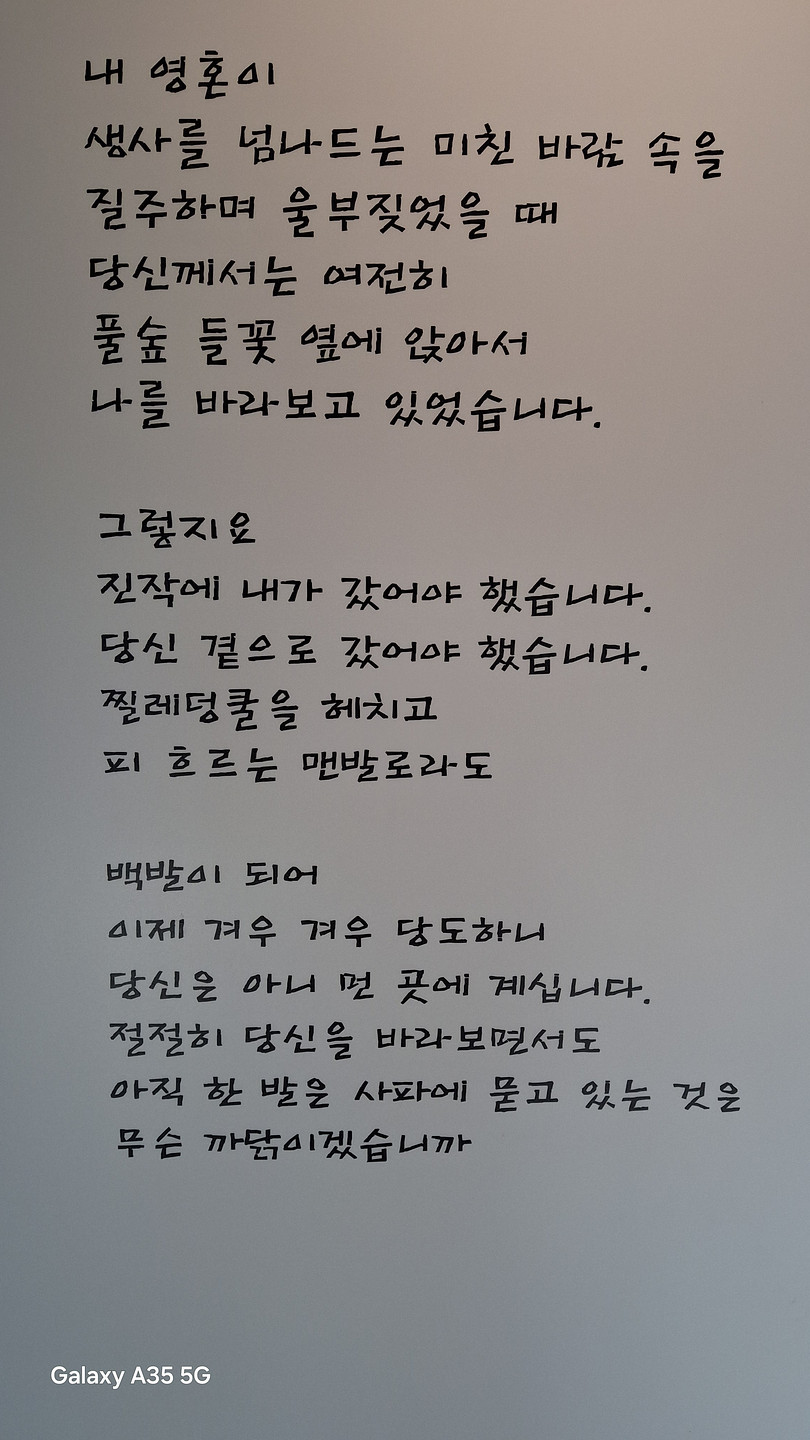 내 영혼이
생사를 넘나드는 미친 바람 속을
질주하며 울부짖었을 때
당신께서는 여전히
풀숲 들꽃 옆에 앉아서
나를 바라보고 있었습니다.
그렇지요
진작에 내가 갔어야 했습니다.
당신 곁으로 갔어야 했습니다.
찔레덩쿨을 헤치고
피 흐르는 맨발로라도
백발이 되어
이제 겨우 겨우 당도하니
당신은 아니 먼 곳에 계십니다.
절절히 당신을 바라보면서도
아직 한 발은 사파에 묻고 있는 것은
무슨 까닭이겠습니까
Galaxy A35 5G